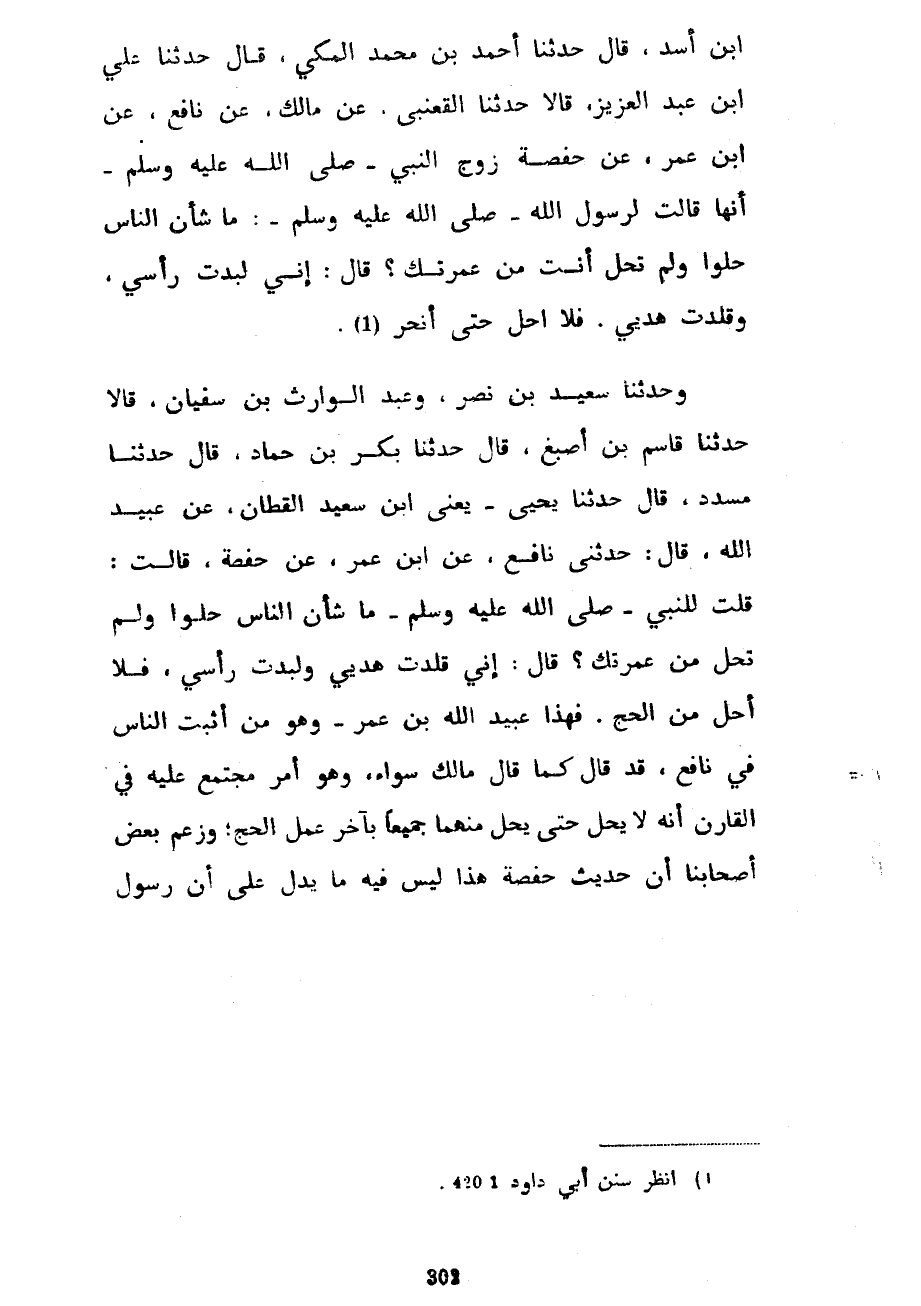 ابن أسد ، قال حدثنا أحمد بن محمد المكي ، قال حدثنا علي
ابن عبد العزيز، قالا حدثنا القعنبى . عن مالك، عن نافع ، عن
ابن عمر ، عن حفصة زوج النبي ـ صلى الله عليه وسلم ـ
أنها قالت لرسول الله ـ صلى الله عليه وسلم ـ : ما شأن الناس
حلوا ولم تحل أنت من عمرتك ؟ قال : إني لبدت رأسي ،
وقلدت هديي . فلا احل حتى أنحر (1) .
وحدثنا سعيد بن نصر ، وعبد الوارث بن سفيان ، قالا
حدثنا قاسم بن أصبغ ، قال حدثنا بكر بن حماد ، قال حدثنا
مسدد ، قال حدثنا يحيى ـ يعنى ابن سعيد القطان، عن عبيد
الله ، قال : حدثنى نافع ، عن ابن عمر ، عن حفصة ، قالت :
قلت للنبي ـ صلى الله عليه وسلم ـ ما شأن الناس حلوا ولم
تحل من عمرتك ؟ قال : إني قلدت هديي ولبدت رأسي ، فلا
أحل من الحج . فهذا عبيد الله بن عمر ـ وهو من أثبت الناس
في نافع ، قد قال كما قال مالك سواء، وهو أمر مجتمع عليه في
القارن أنه لا يحل حتى يحل منهما جميعاً بآخر عمل الحج؛ وزعم بعض
أصحابنا أن حديث حفصة هذا ليس فيه ما يدل على أن رسول
١) انظر سنن أبي داود 1
302